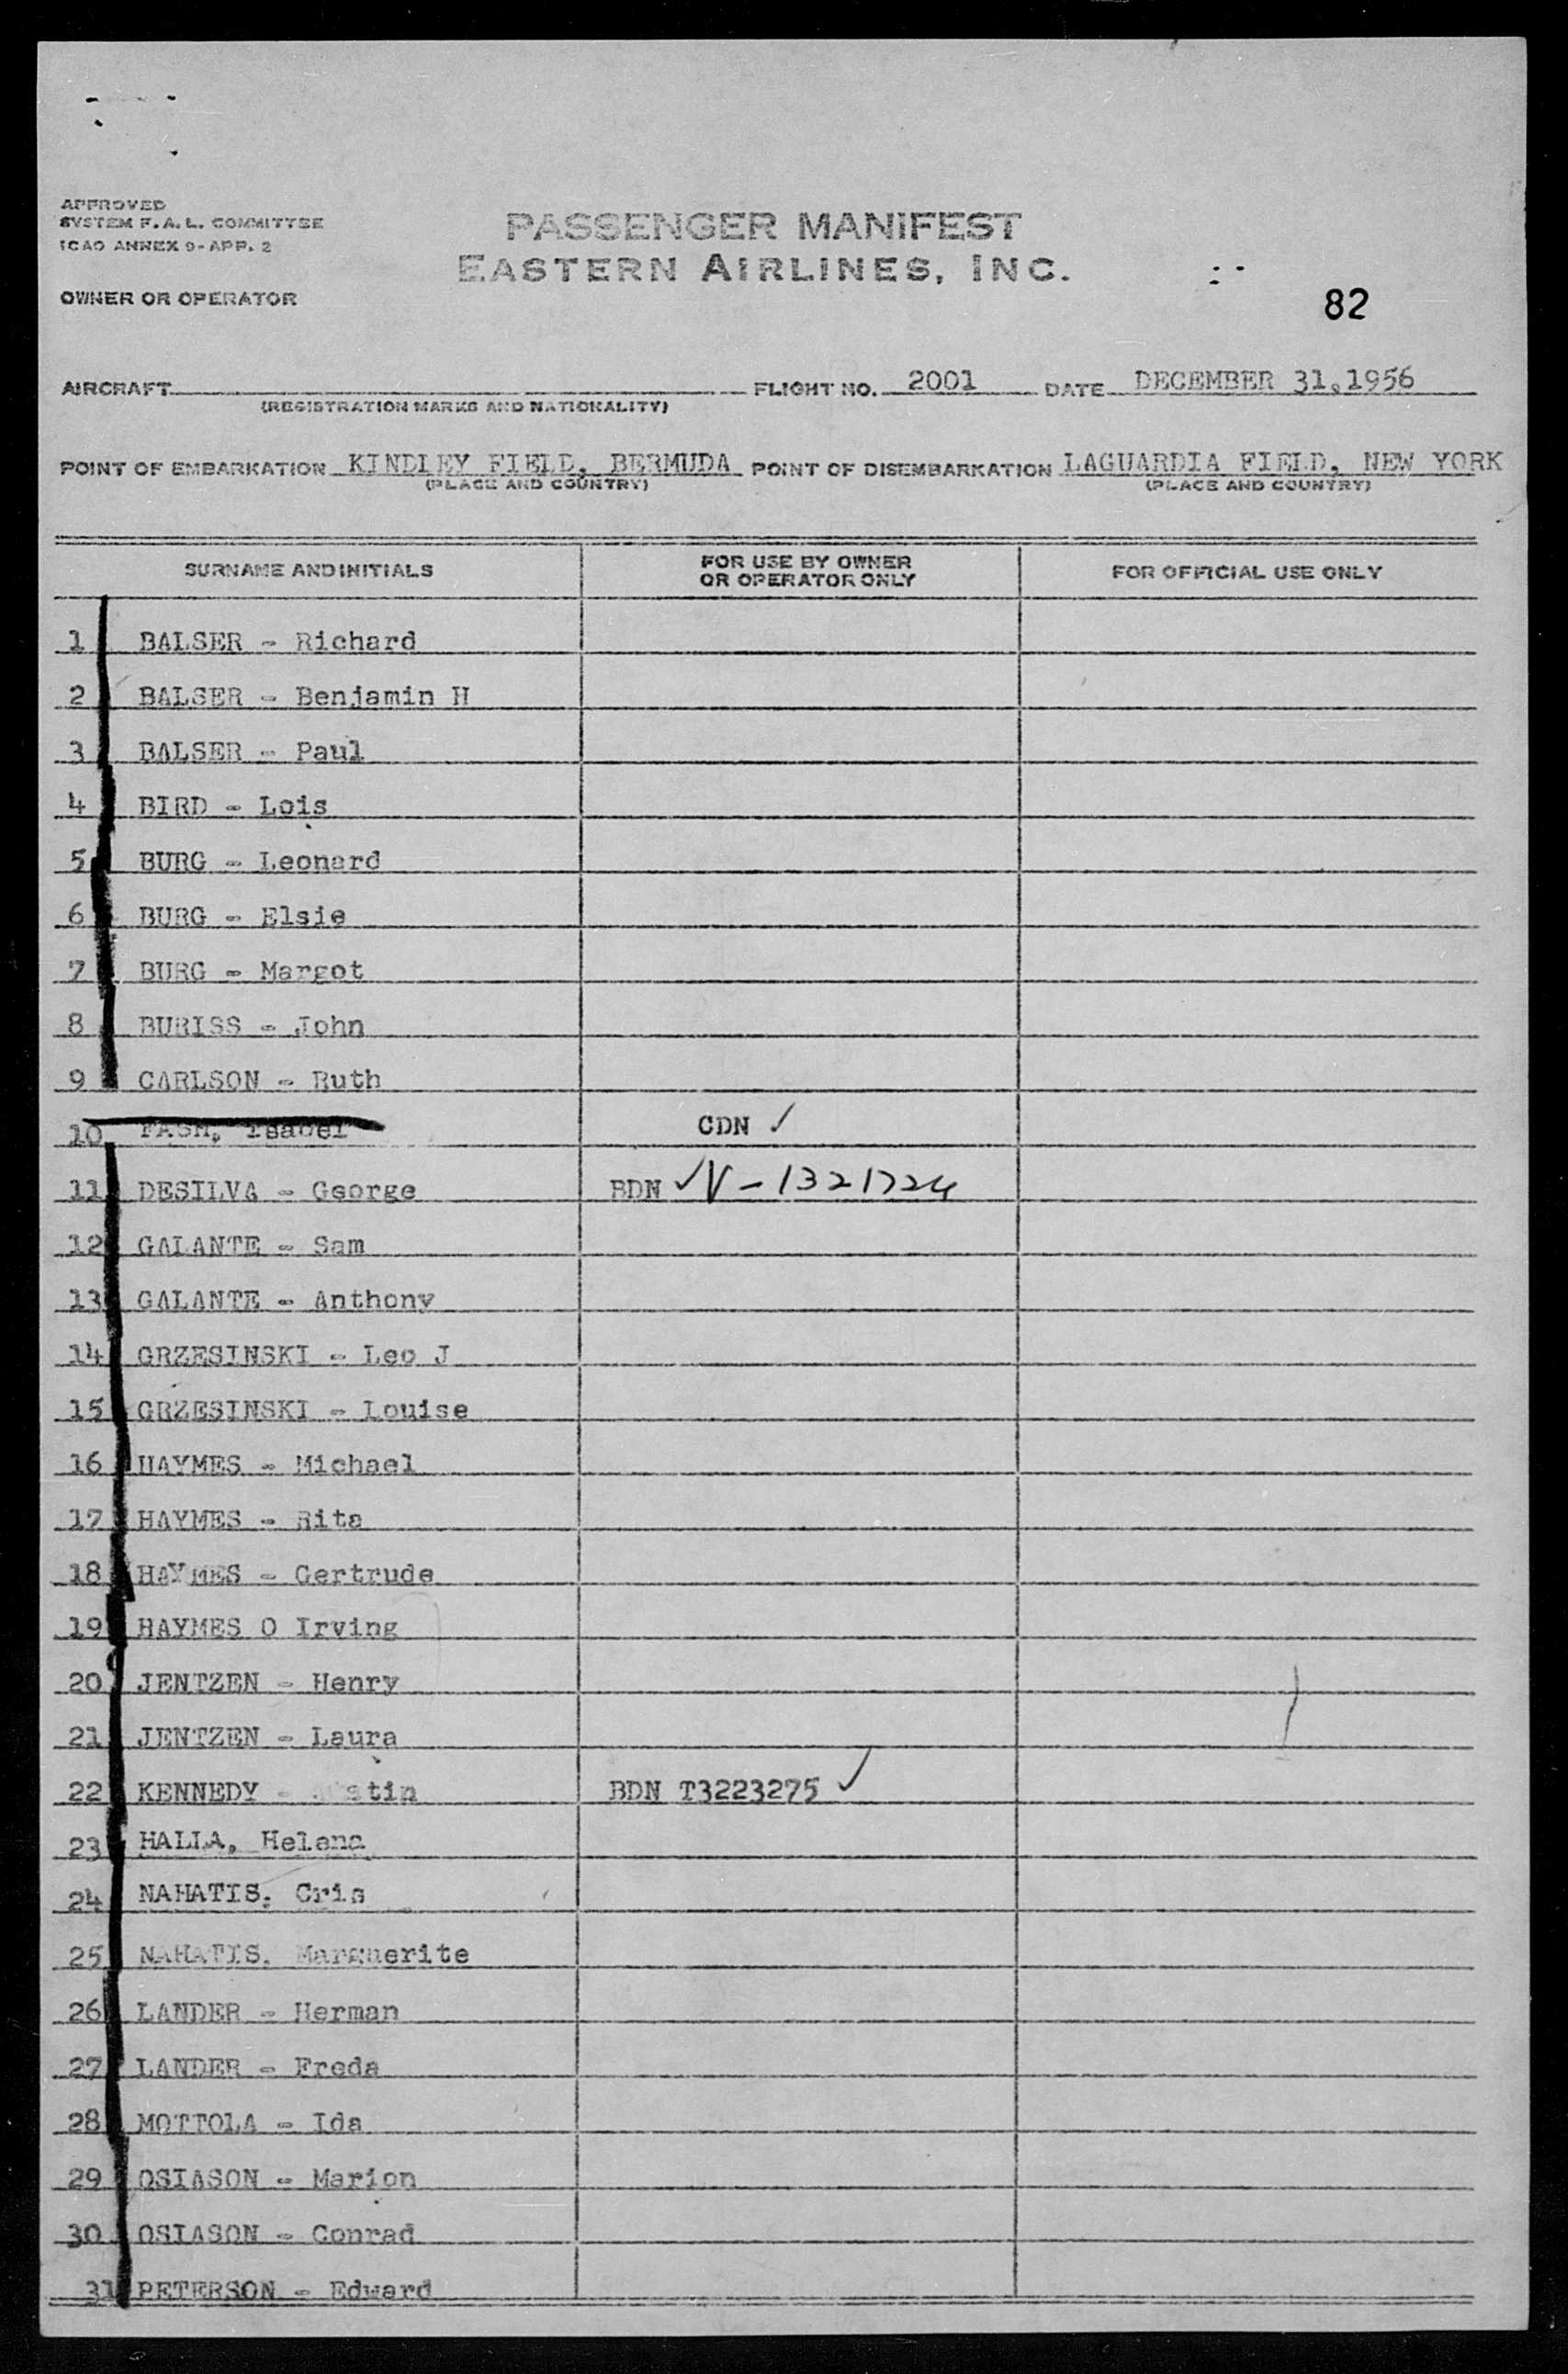 APPROVED
SYSTEM F.A.L. COMMITTEE
ICAO ANNEX 9-APP. 2
PASSENGER MANIFEST
EASTERN AIRLINES, INC.
OWNER OR OPERATOR
82
AIRCRAFT FLIGHT NO. 2001 DATE DECEMBER 31,1956
(REGISTRATION MARKS AND NATIONALITY)
POINT OF EMBARKATION KINDLEY FIELD, BERMUDA POINT OF DISEMBARKATION LAGUARDIA FIELD, NEW YORK
(PLACE AND COUNTRY) (PLACE AND COUNTRY)
SURNAME AND INITIALS FOR USE BY OWNER OR OPERATOR ONLY FOR OFFICIAL USE ONLY
1 BALSER - Richard
2 BALSER - Benjamin H
3 BALSER - Paul
4 BIRD - Lois
5 BURG - Leonard
6 BURG - Elsie
7 BURG - Margot
8 BURISS - John
9 CARLSON - Ruth
10 Isabel CDN ✓
11 DESILVA - George BDN ✓ V-1321724
12 GALANTE - Sam
13 GALANTE - Anthony
14 GRZESINSKI - Leo J
15 GRZESINSKI - Louise
16 HAYMES - Michael
17 HAYMES - Rita
18 HAYMES - Gertrude
19 HAYMES O Irving
20 JENTZEN - Henry
21 JENTZEN - Laura
22 KENNEDY - BDN T3223275 ✓
23 HALLA, Helena
24 NAHATIS, Cris
25 NAHATIS, Marguerite
26 LANDER - Herman
27 LANDER - Freda
28 MOTTOLA - Ida
29 OSIASON - Marion
30 OSIASON - Conrad
31 PETERSON - Edward